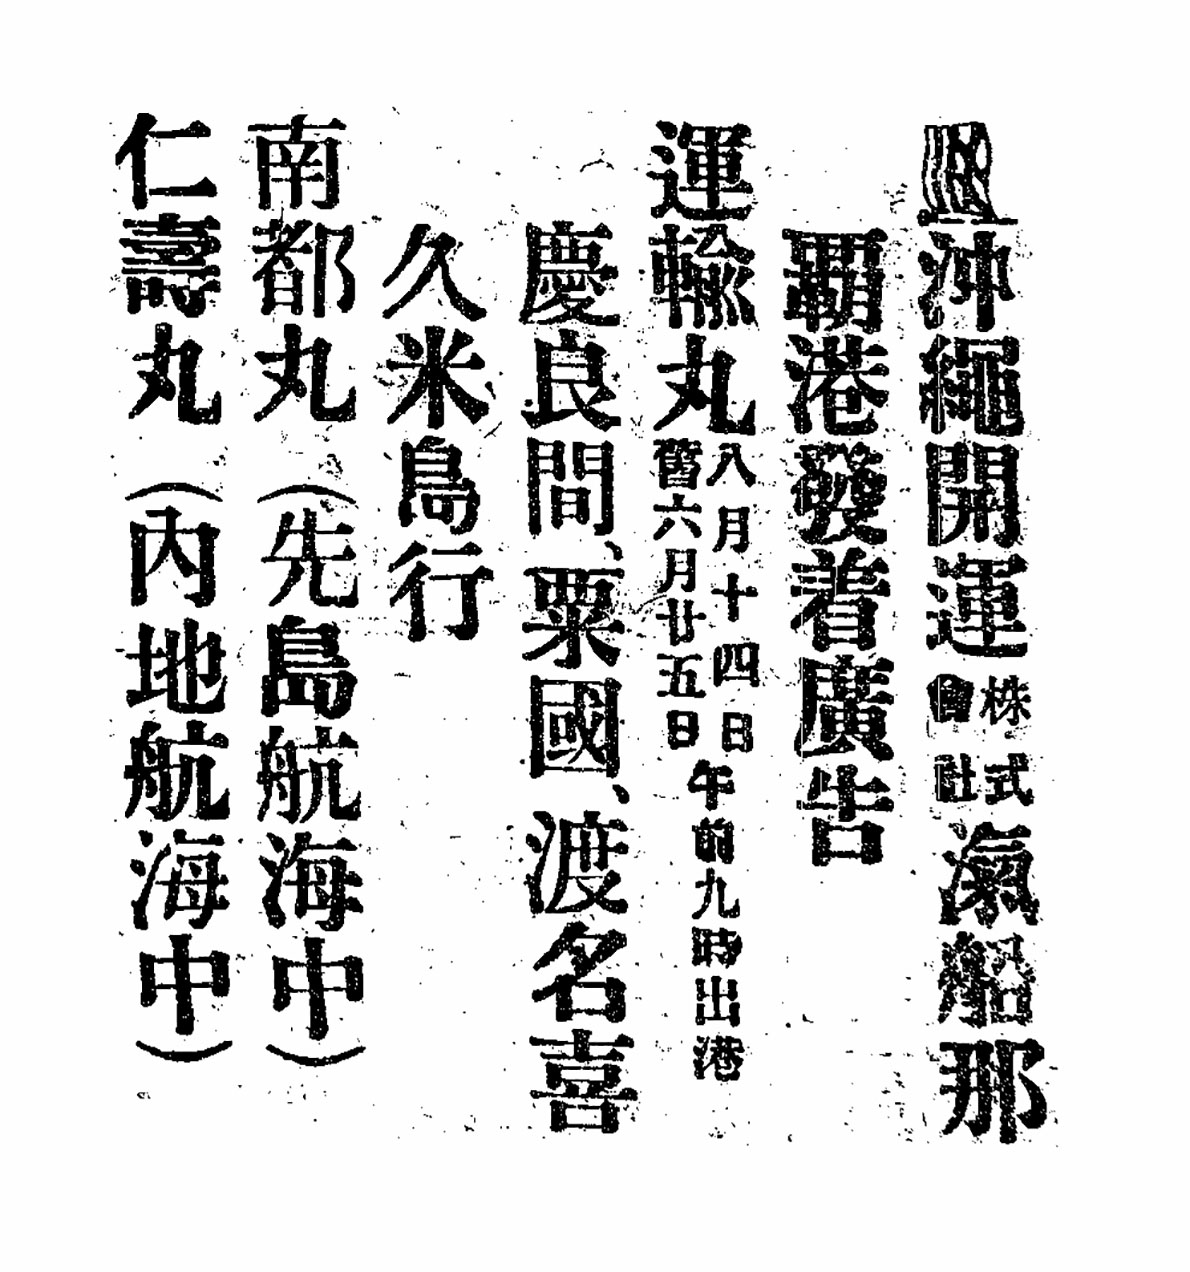 沖繩開運株式會社滊船那
覇港發着廣告
運輸丸八月十四日舊六月廿五日午前九時出港
慶良間、粟國、渡名喜
久米島行
南都丸（先島航海中）
仁壽丸（內地航海中）